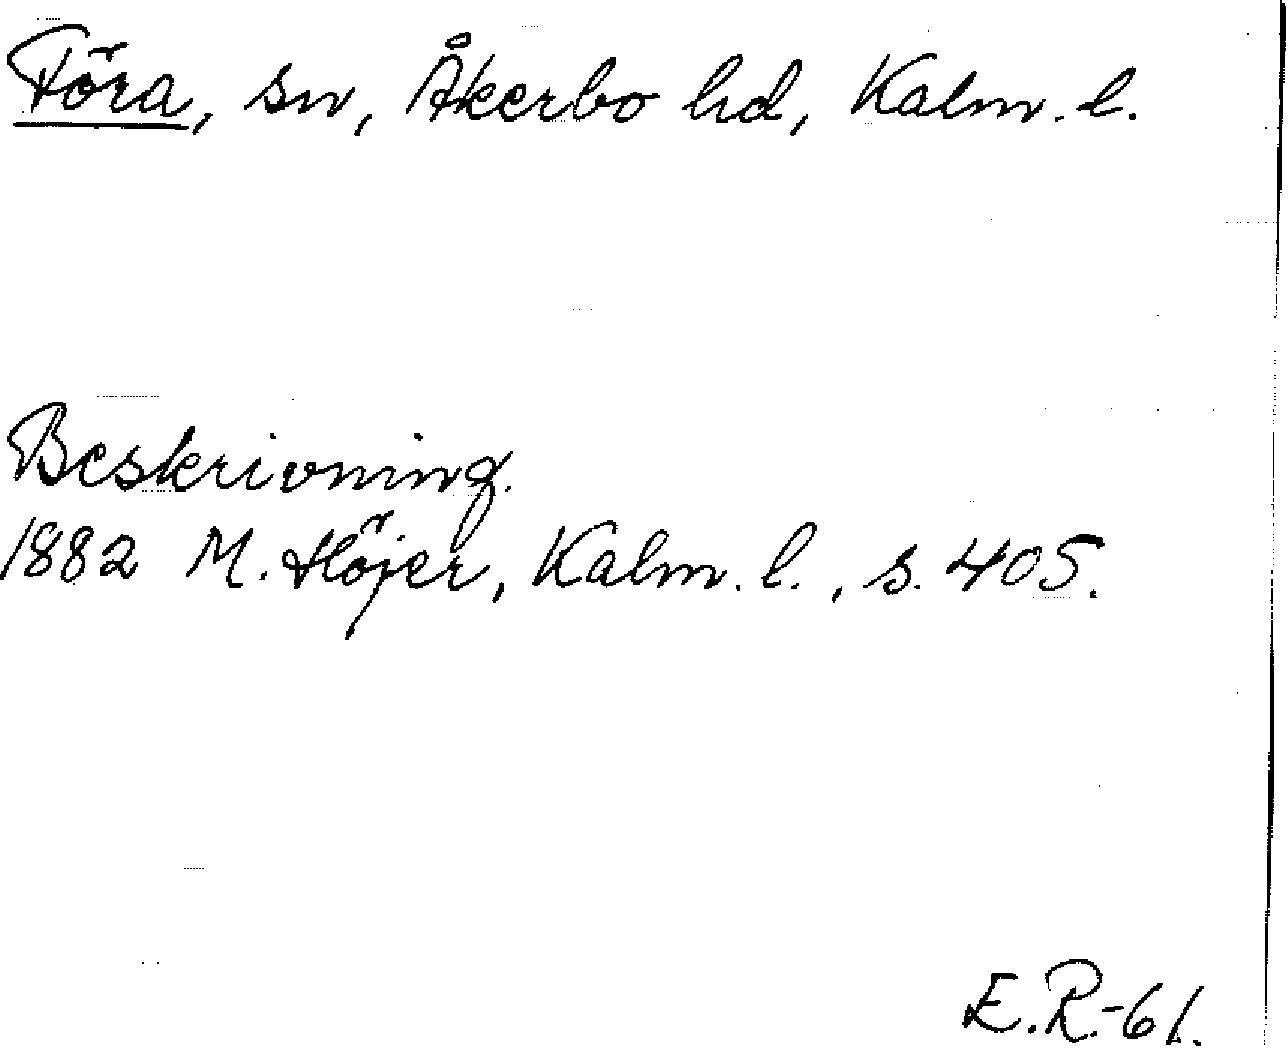 Föra, sn, Åkerbo hd, Kalm. l.
Beskrivning.
1882 M. Höjer, Kalm. l., s. 405.
E.R.-61.